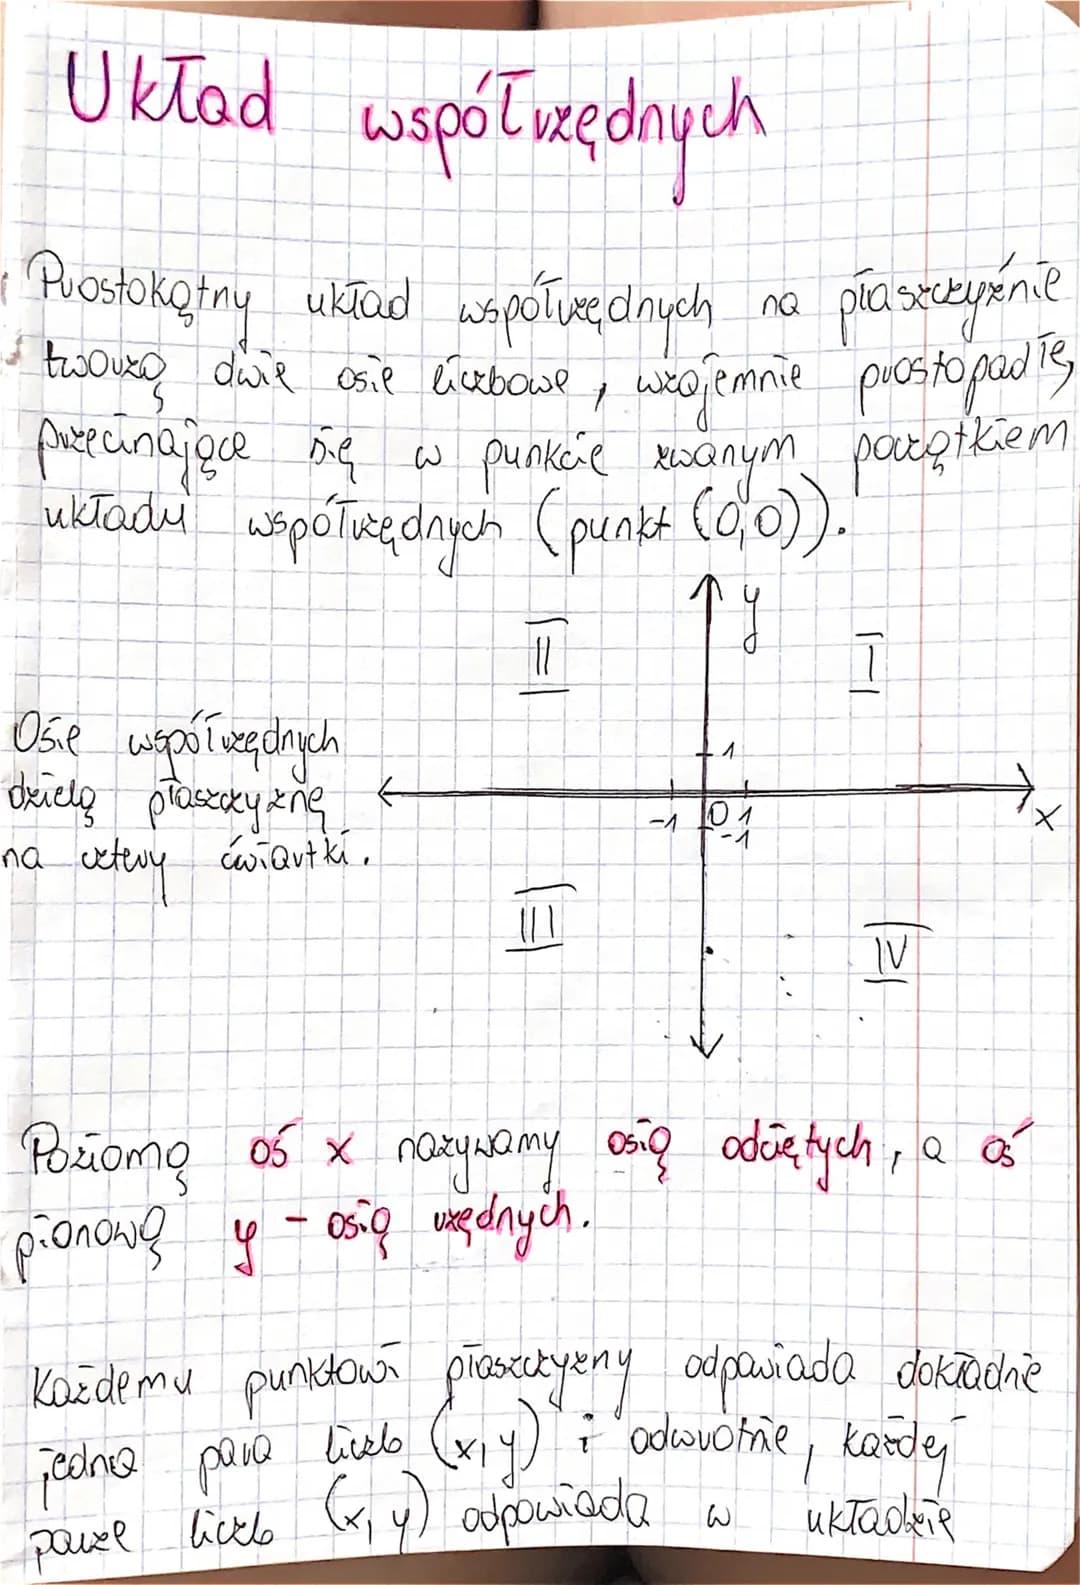 Układ współrzędnych
Prostokątny układ współrzędnych na płaszczyźnie
tworzą dwie osie liczbowe, wzajemnie prostopadłe,
przecinające się w punkcie zwanym początkiem
układu współrzędnych (punkt (0,0)).
y
II
I
Osie współrzędnych
dzielą płaszczyznę
na cztery ćwiartki.
1
-1 0 1
x
-1
III
IV
Poziomą oś x nazywamy osią odciętych, a oś
pionową y - osią rzędnych.
Każdemu punktowi płaszczyzny odpowiada dokładnie
jedna para liczb (x, y) i odwrotnie, każdej
parze liczb (x, y) odpowiada w układzie